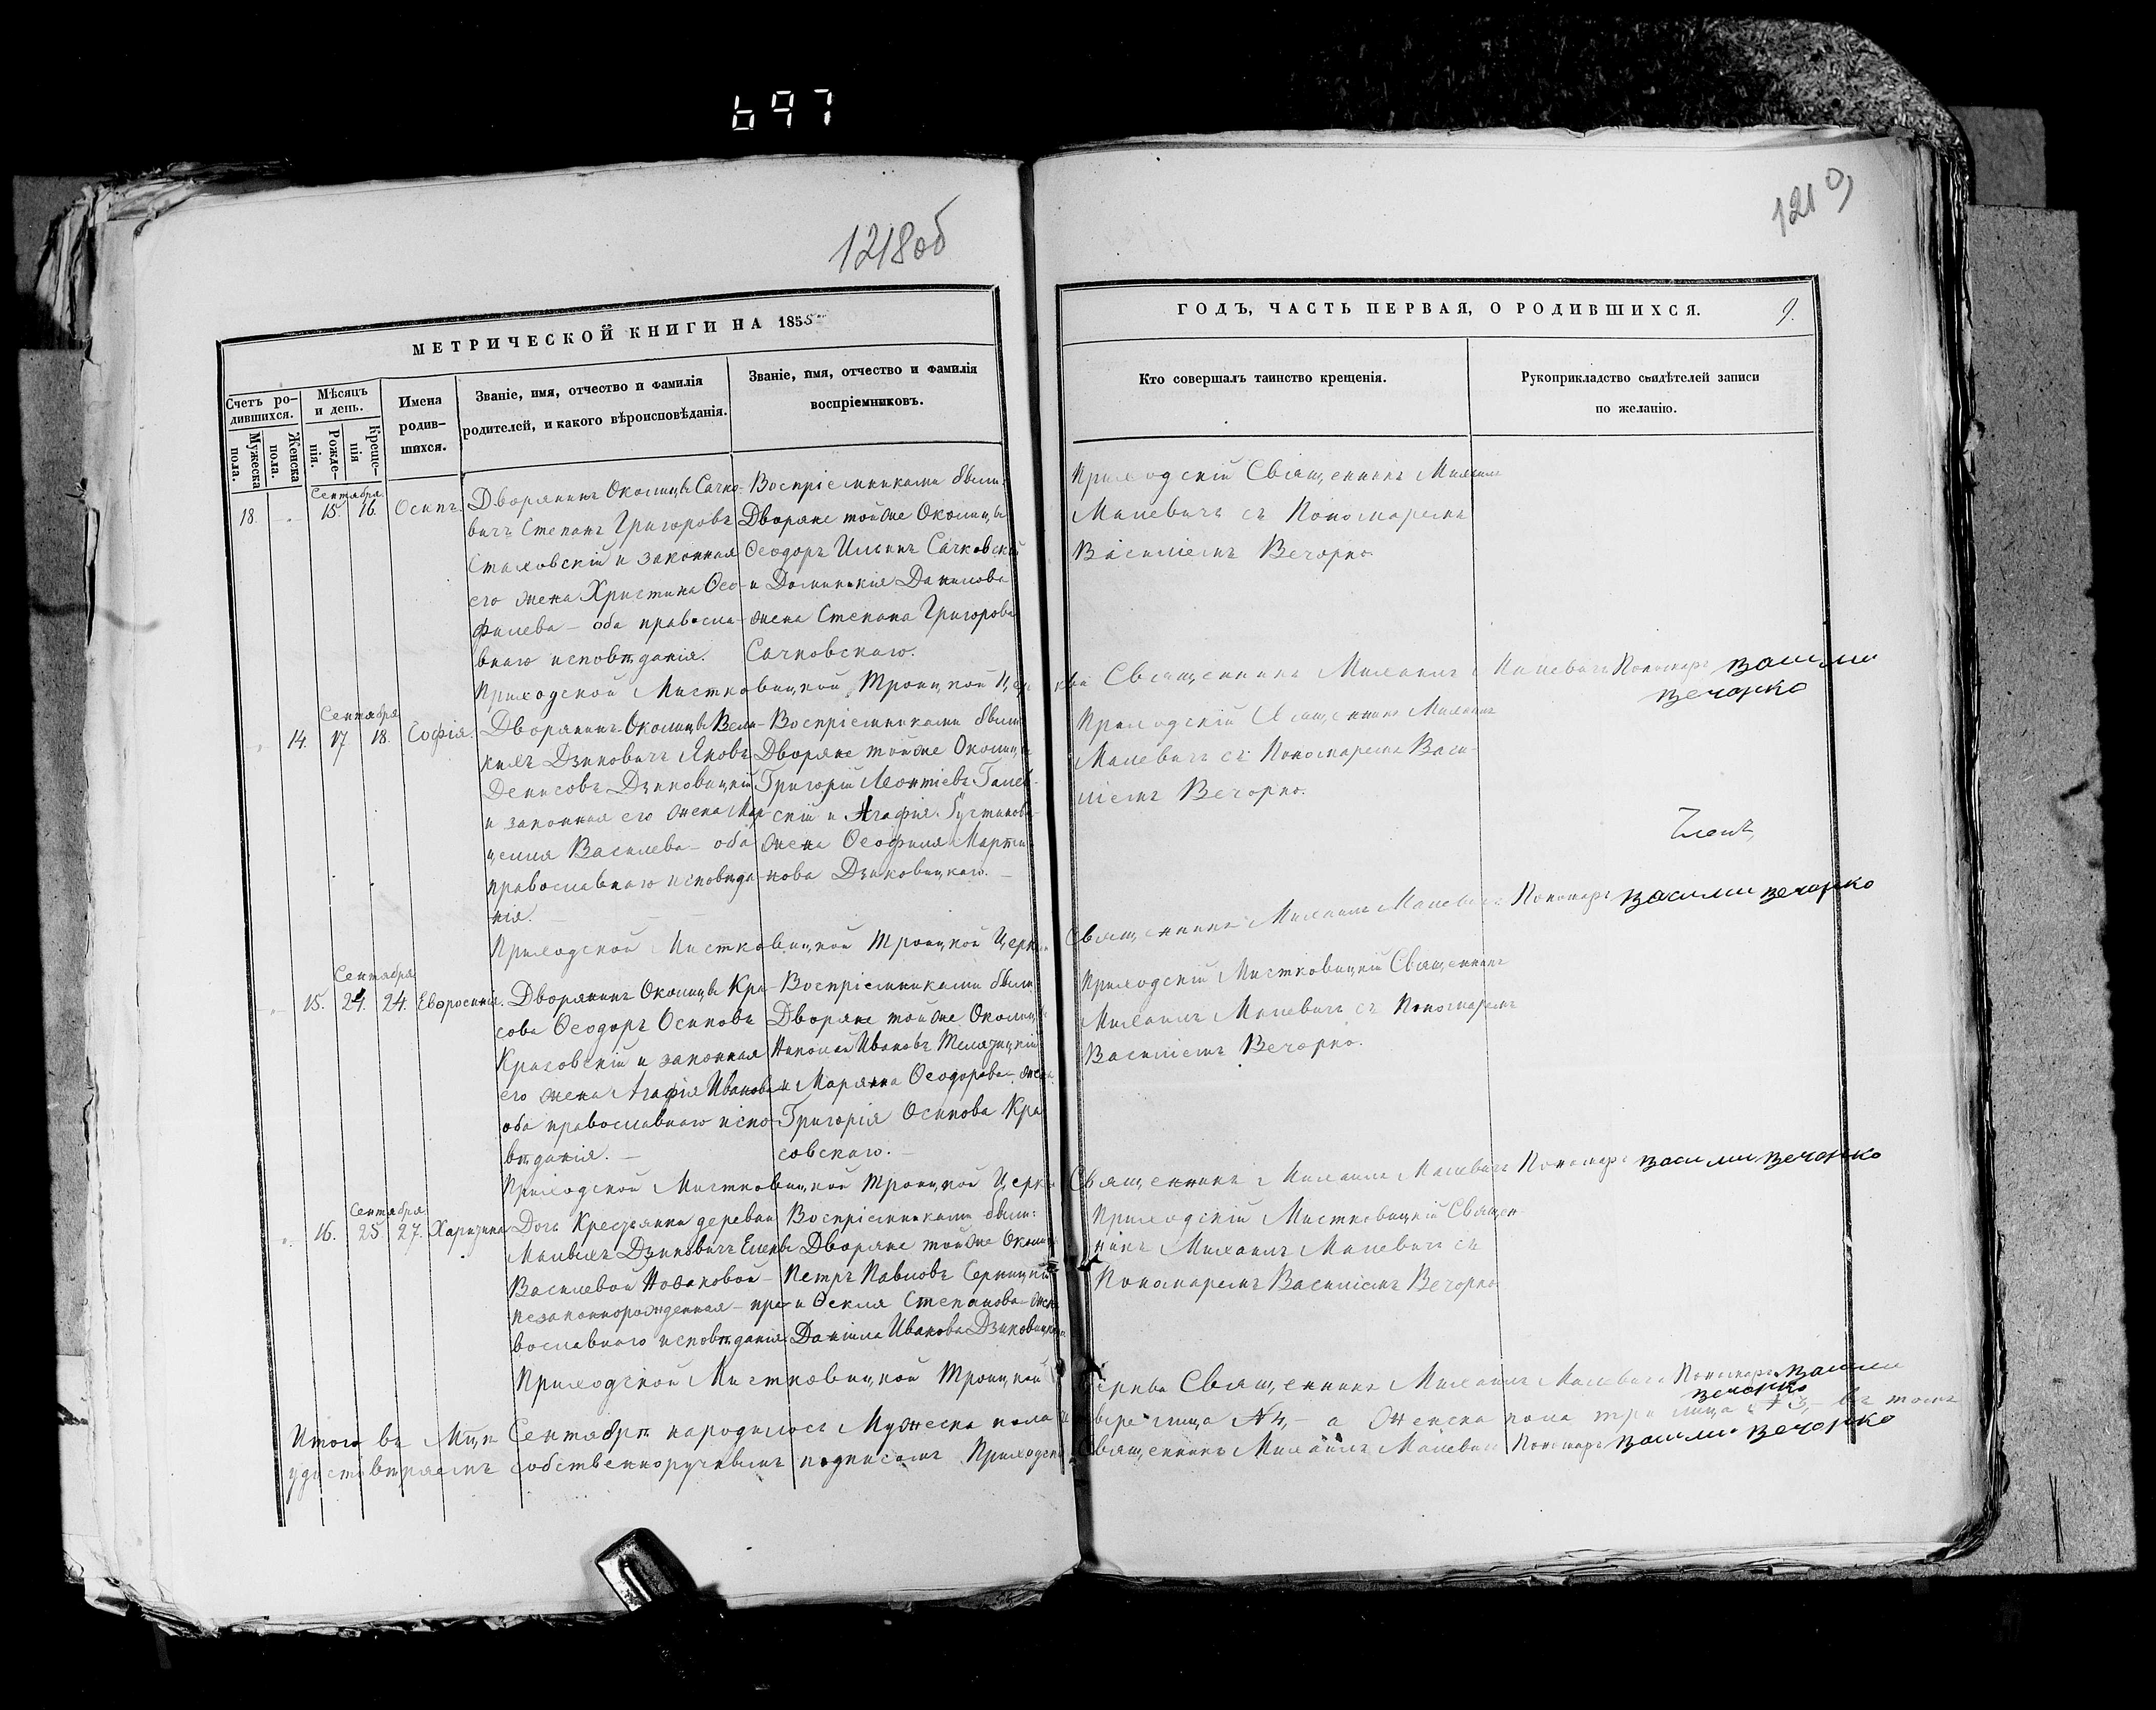 697
1218об
1219
МЕТРИЧЕСКОЙ КНИГИ НА 1855
ГОДЪ, ЧАСТЬ ПЕРВАЯ, О РОДИВШИХСЯ.
9.
Счетъ ро-
дившихся.
Мужеска
пола.
Женска
пола.
Мѣсяцъ
и день.
Рожде-
нія.
Креще-
нія
Имена
родив-
шихся.
Званіе, имя, отчество и фамилія
родителей, и какого вѣроисповѣданія.
Званіе, имя, отчество и фамилія
воспріемниковъ.
Кто совершалъ таинство крещенія.
Рукоприкладство свидѣтелей записи
по желанію.
Сентября
18. 15. 16. Осипъ.
Дворянинъ Околицы Сачко-
вичъ Степанъ Григоровъ
Стаховскій и законная
его жена Христина Ѳео-
филева – оба правосла-
внаго исповѣданія.
Воспріемниками были:
Дворяне тойже Околицы
Ѳеодоръ Ильинъ Сачковскій
и Доминикія Данилова
жена Степана Григорова
Сачковскаго.
Приходскій Священникъ Михаилъ
Малевичъ съ Пономаремъ
Василіемъ Вечорко
Приходской Мистковицкой Троицкой Церкви Священникъ Михаилъ Малевичъ Пономарь Васили
Вечорко
Сентября
14. 17. 18. Софія.
Дворянинъ Околицы Вели-
кихъ Дзиковичъ Яковъ
Денисовъ Дзиковицкій
и законная его жена Мар-
целля Василева – оба
православнаго исповѣда-
нія. –
Воспріемниками были
Дворяне тойже Околицы
Григорій Леонтіевъ
скій и Агафія
жена Ѳеофила Марти-
нова Дзиковицкаго. –
Приходскій Священникъ Михаилъ
Малевичъ съ Пономаремъ Васи-
ліемъ Вечорко.
Членъ
Приходской Мистковицкой Троицкой Церкви Священникъ Михаилъ Малевичъ Пономарь Васили Вечорко
Сентября
15. 24. 24. Евфросинія.
Дворянинъ Околицы Кра-
сова Ѳеодоръ Осиповъ
Красовскій и законная
его жена Агафія Иванова
оба православнаго испо-
вѣданія. –
Воспріемниками были
Дворяне тойже Околицы
Николай Ивановъ
и Маріяна Ѳеодорова – жена
Григорія Осипова Кра-
совскаго. –
Приходскій Мистковицкій Священникъ
Михаилъ Малевичъ съ Пономаремъ
Василіемъ Вечорко.
Приходской Мистковицкой Троицкой Церкви Священникъ Михаилъ Малевичъ Пономарь Васили Вечорко
Сентября
16. 25 27. Харитина
Дочь Крестьянки деревни
Малыхъ Дзиковичъ Елены
Василевой Новаковой –
незаконнорожденная – пра-
вославнаго исповѣданія
Воспріемниками были:
Дворяне тойже Околицы
Петръ Павловъ Серницкій
и Ѳекля Степанова – жена
Даніила Иванова Дзиковицкаго
Приходскій Мистковицкій Священ-
никъ Михаилъ Малевичъ съ
Пономаремъ Василіемъ Вечорко
Приходской Мистковицкой Троицкой Церкви Священникъ Михаилъ Малевичъ Пономарь Васили
Вечорко
Итого въ Мцѣ Сентябрѣ народилось Мужеска пола лица №4, – а Женска пола три лица №3, – въ томъ
удостовѣряемъ собственноручнымъ подписомъ Приходской Священникъ Михаилъ Малевичъ Пономарь Васили Вечорко